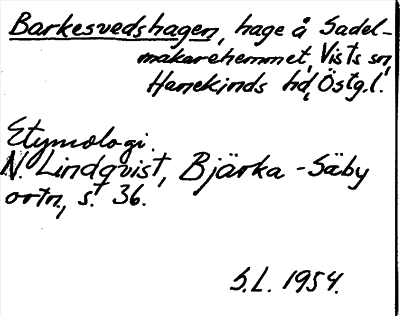 Barkesvedshagen, hage å Sadel-
makarehemmet, Vists sn,
Hanekinds hd, Östg.l.
Etymologi.
N. Lindqvist, Bjärka-Säby
ortn., s. 36.
S.L. 1954.